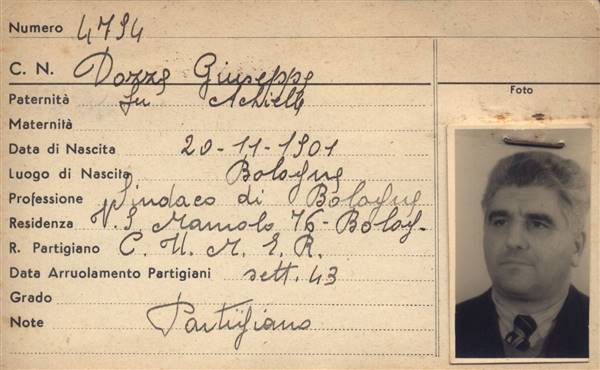 Numero 4794
C. N. Dozza Giuseppe
Paternità fu Achille
Maternità
Data di Nascita 20-11-1901
Luogo di Nascita Bologna
Professione Sindaco di Bologna
Residenza V. S. Mamolo 76- Bolog.
R. Partigiano C. U. M. E. R.
Data Arruolamento Partigiani sett. 43
Grado
Note Partigiano
Foto